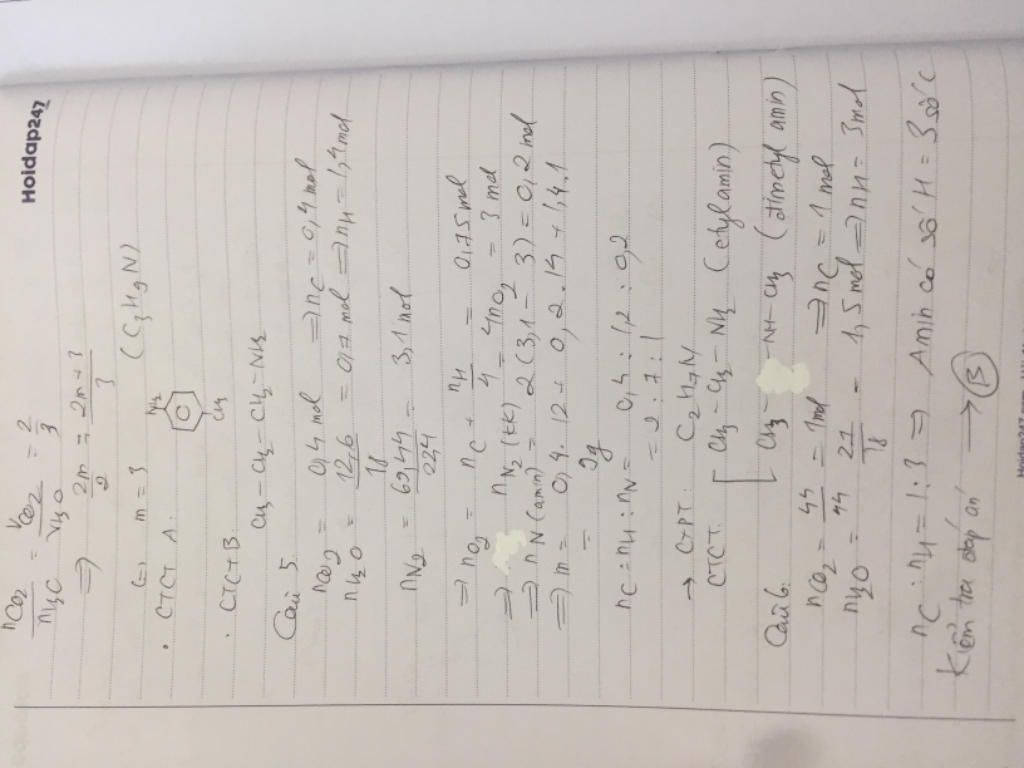 Hoidap247
nCO2/nH2O = VCO2/VH2O = 2/3
=> 2n/2 = 2n+3/3
(=) n = 3 (C3H9N)
• CTCT A:
NH2
C
CH3
• CTCT B:
CH3-CH2-CH2-NH2
Câu 5.
nCO2 = 0,4 mol => nC = 0,4 mol
nH2O = 12,6/18 = 0,7 mol => nH = 1,4 mol
nN2 = 69,44/22,4 = 3,1 mol
=> nO2 = nC + nH/4 = 0,75 mol
=> nN2 (kk) = 4nO2 = 3 mol
=> nN (amin) = 2(3,1 - 3) = 0,2 mol
=> m = 0,4.12 + 0,2.14 + 1,4.1
= 9g
nC : nH : nN = 0,4 : 1,2 : 0,2
= 2 : 7 : 1
→ CTPT: C2H7N
CTCT: CH3-CH2-NH2 (etylamin)
CH3-NH-CH3 (đimetyl amin)
Câu 6.
nCO2 = 44/44 = 1mol => nC = 1 mol
nH2O = 27/18 = 1,5 mol => nH = 3mol
nC : nH = 1 : 3 => Amin có số H = 3 số C
Kiểm tra đáp án → B